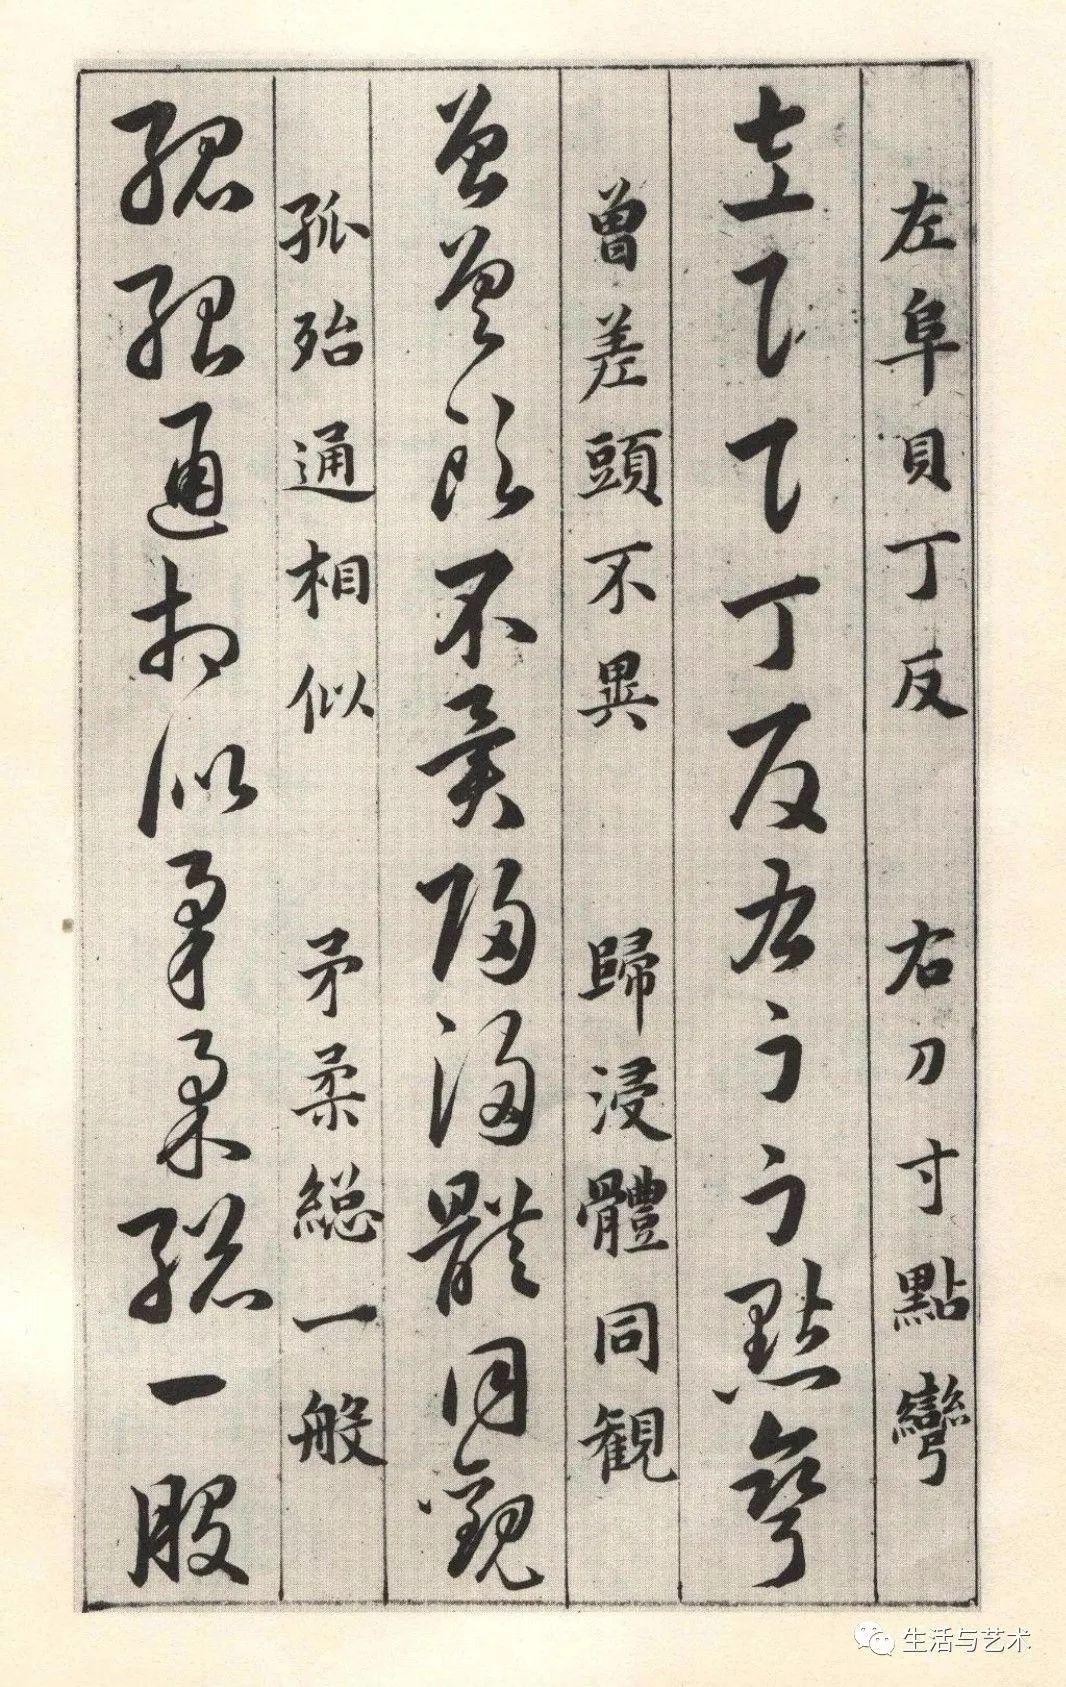 左阜貝丁反 右刀寸點彎
左阜貝丁反右刀寸點彎
曾差頭不異 歸浸體同観
曾差頭不異歸浸體同観
孤殆通相似 矛柔総一般
孤殆通相似矛柔総一般
生活与艺术